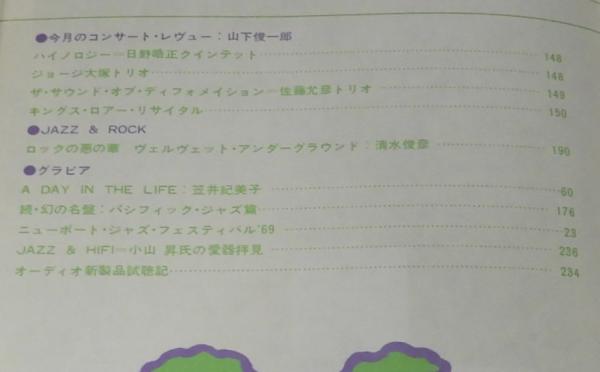 ●今月のコンサート・レヴュー：山下俊一郎
ハイノロジー＝日野皓正クインテット 148
ジョージ大塚トリオ 148
ザ・サウンド・オブ・ディフォメイション＝佐藤允彦トリオ 149
キングス・ロアー・リサイタル 150
●JAZZ & ROCK
ロックの悪の華 ヴェルヴェット・アンダーグラウンド：清水俊彦 190
●グラビア
A DAY IN THE LIFE：笠井紀美子 60
続・幻の名盤：パシフィック・ジャズ篇 176
ニューポート・ジャズ・フェスティバル'69 23
JAZZ & HIFI＝小山 昇氏の愛器拝見 236
オーディオ新製品試聴記 234